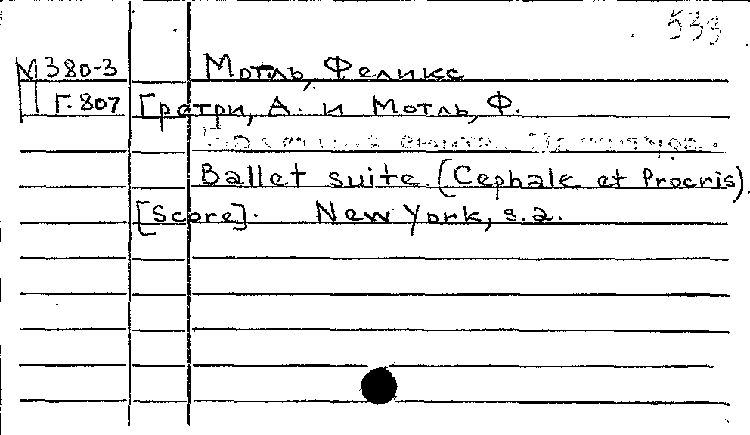 533
М380-3 Мотль, Феликс
Г.807 [Гретри, А. и Мотль, Ф.
Ballet suite. (Cephale et Procris).
[Score]. New York, s.a.